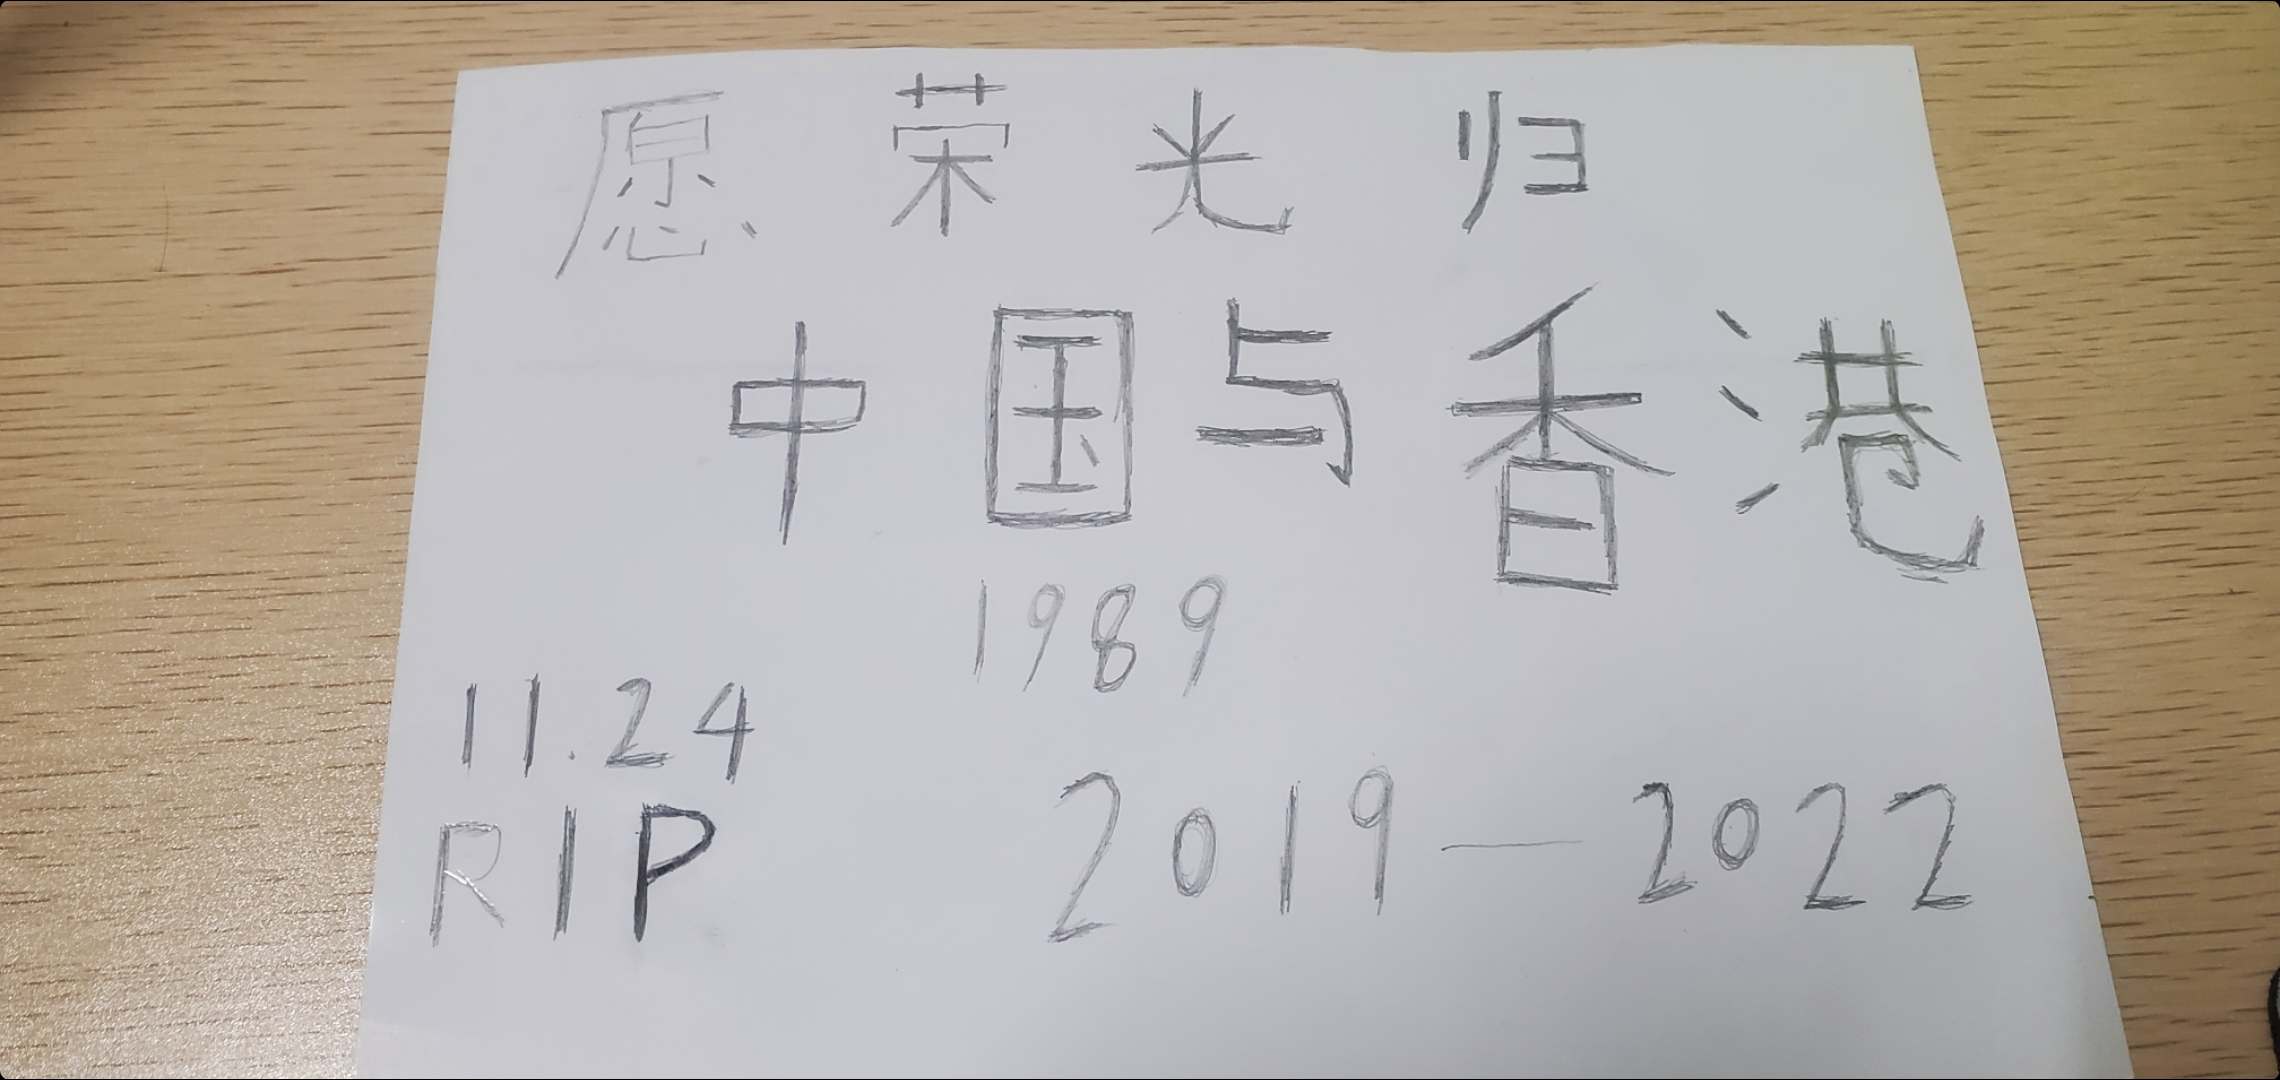 愿荣光归
中国与香港
1989
11.24
RIP
2019—2022